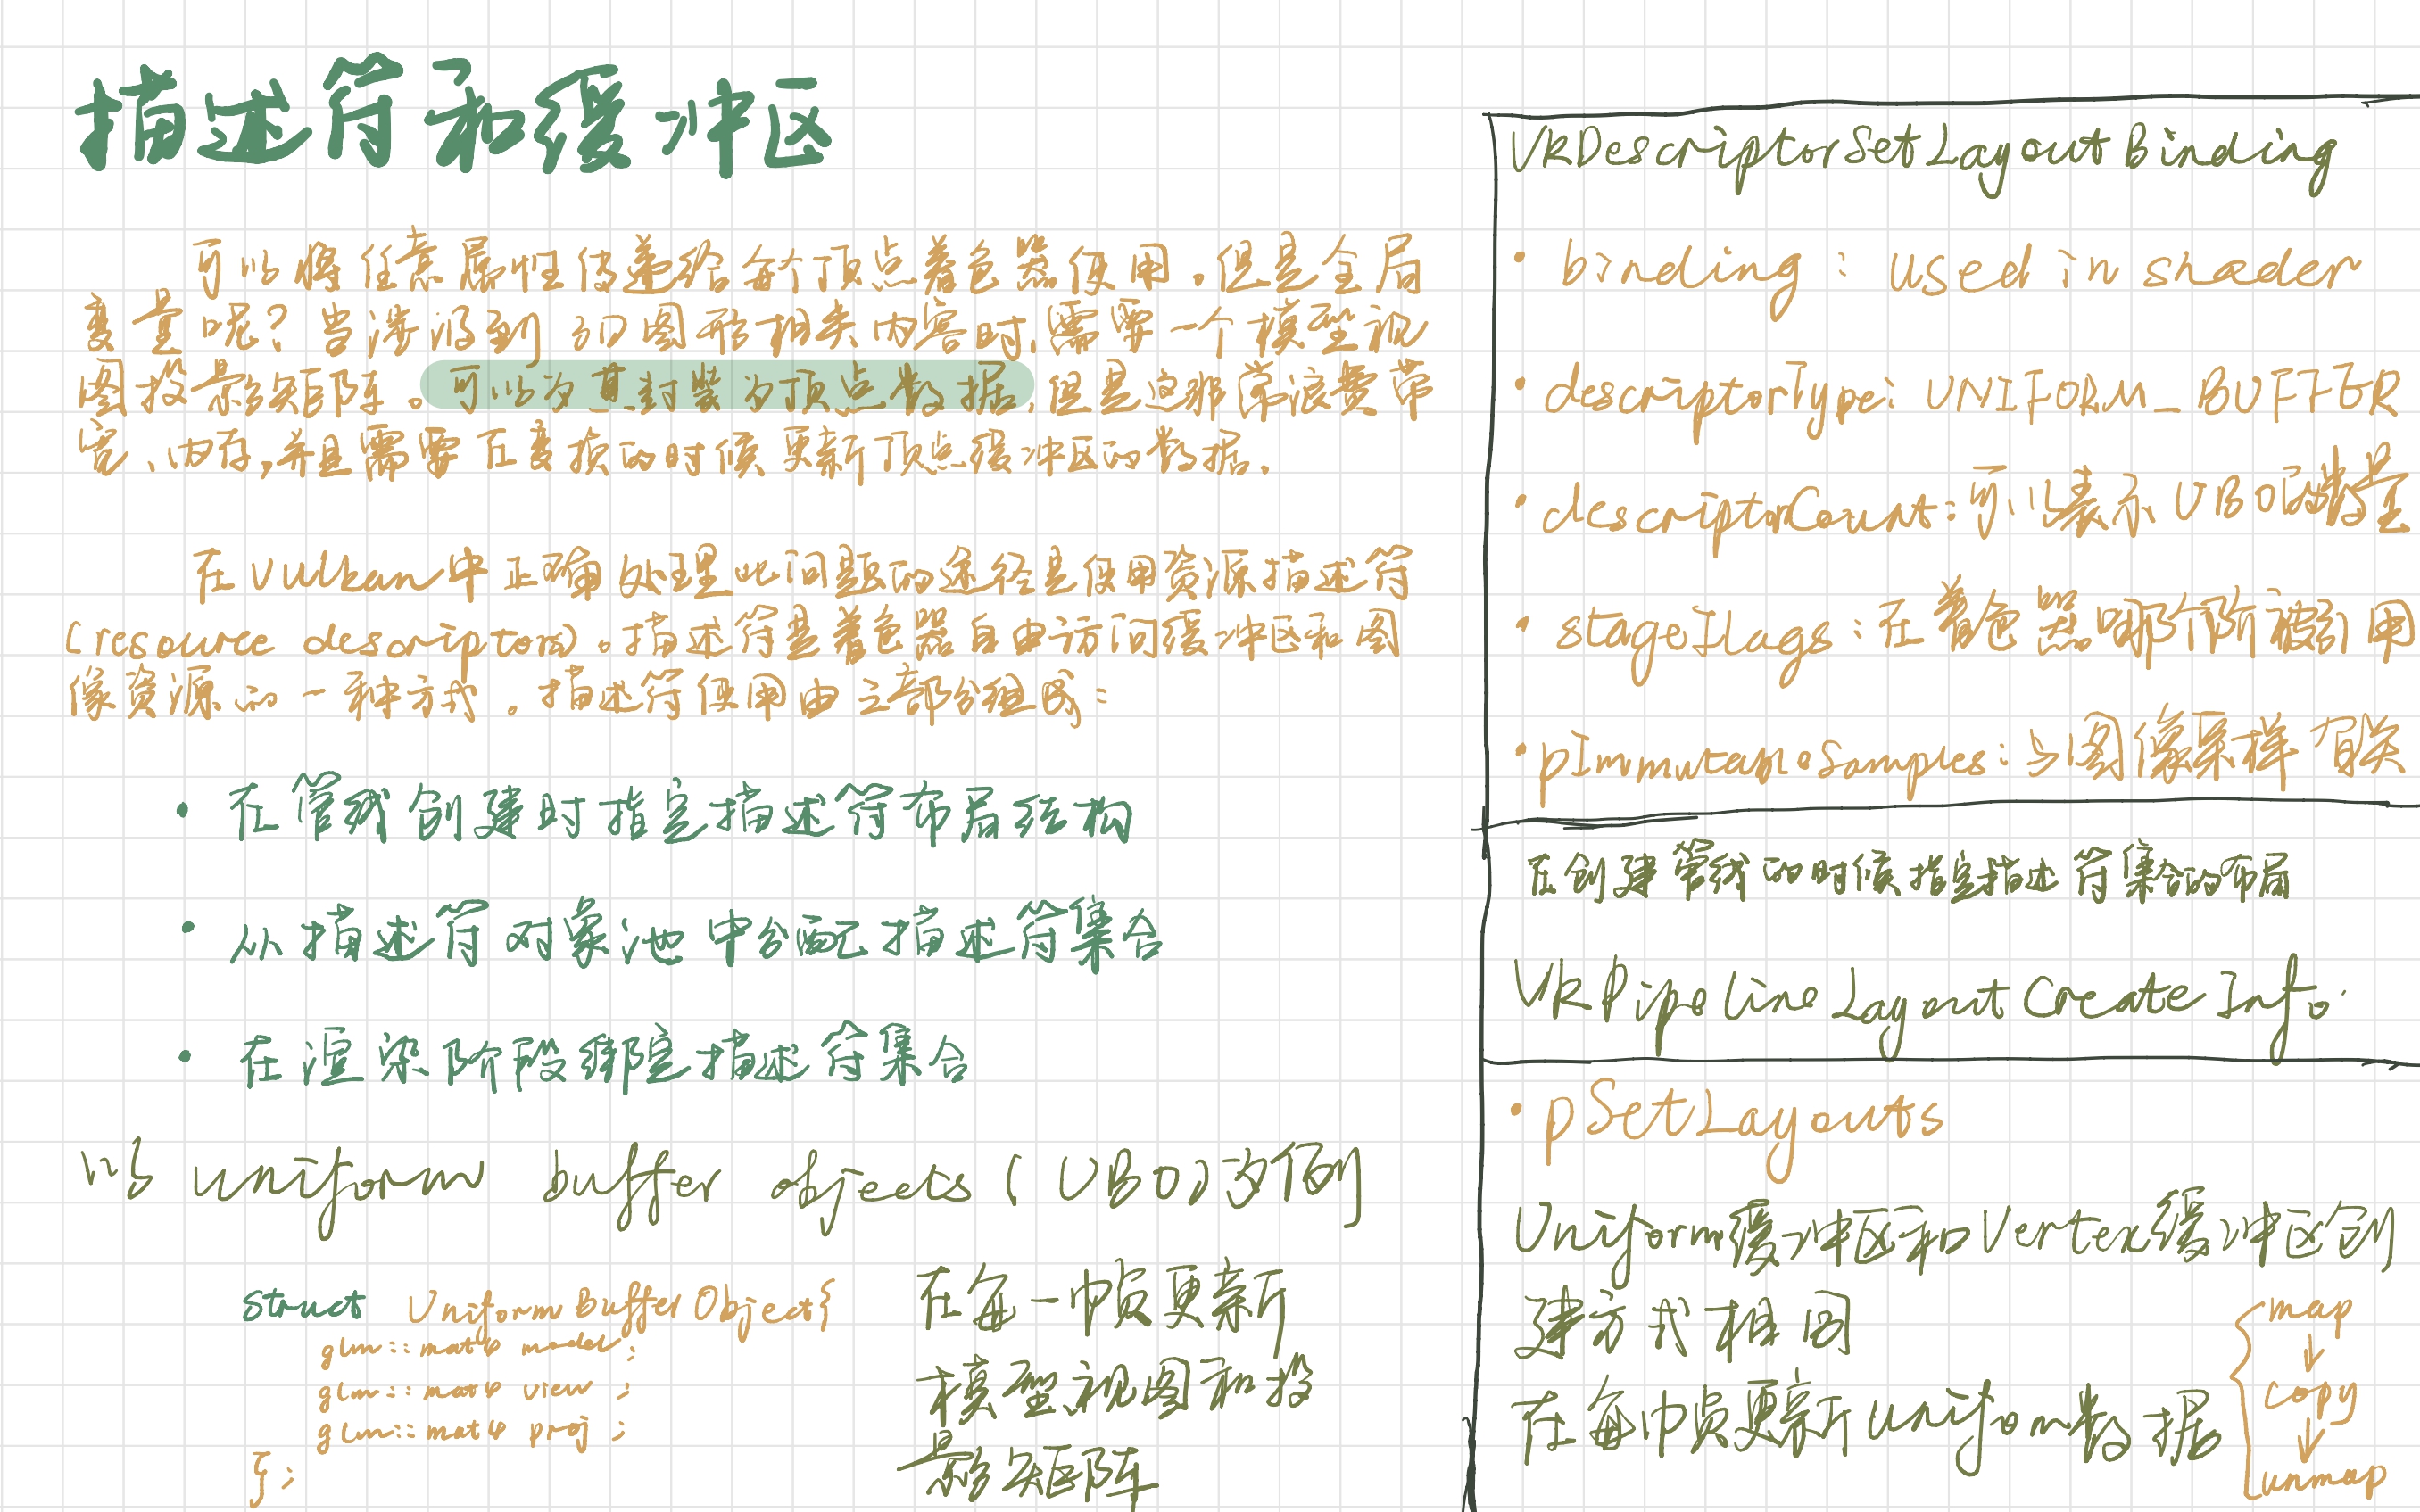 描述符和缓冲区
可以将任意属性传递给每个顶点着色器使用。但是全局
变量呢?当涉及到3D图形相关内容时,需要一个模型视
图投影矩阵。可以为其封装为顶点数据,但是这非常浪费带
宽、内存,并且需要在变换的时候更新顶点缓冲区的数据。
在Vulkan中正确处理此问题的途径是使用资源描述符
(resource descriptors)。描述符是着色器自由访问缓冲区和图
像资源的一种方式。描述符使用由三部分组成:
• 在管线创建时指定描述符布局结构
• 从描述符对象池中分配描述符集合
• 在渲染阶段绑定描述符集合
以 uniform buffer objects (UBO)为例
struct UniformBufferObject{
glm::mat4 model;
glm::mat4 view;
glm::mat4 proj;
};
在每一帧更新
模型、视图和投
影矩阵
VkDescriptorSetLayoutBinding
• binding: used in shader
• descriptorType: UNIFORM_BUFFER
• descriptorCount:可以表示UBO的数量
• stageFlags:在着色器哪个阶被引用
• pImmutableSamples:与图像采样有关
在创建管线的时候指定描述符集合的布局
VkPipelineLayoutCreateInfo
• pSetLayouts
Uniform缓冲区和Vertex缓冲区创
建方式相同
在每帧更新uniform数据
map
↓
copy
↓
unmap